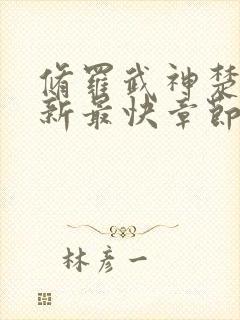 脩羅武神楚
新最快章節
林彥一